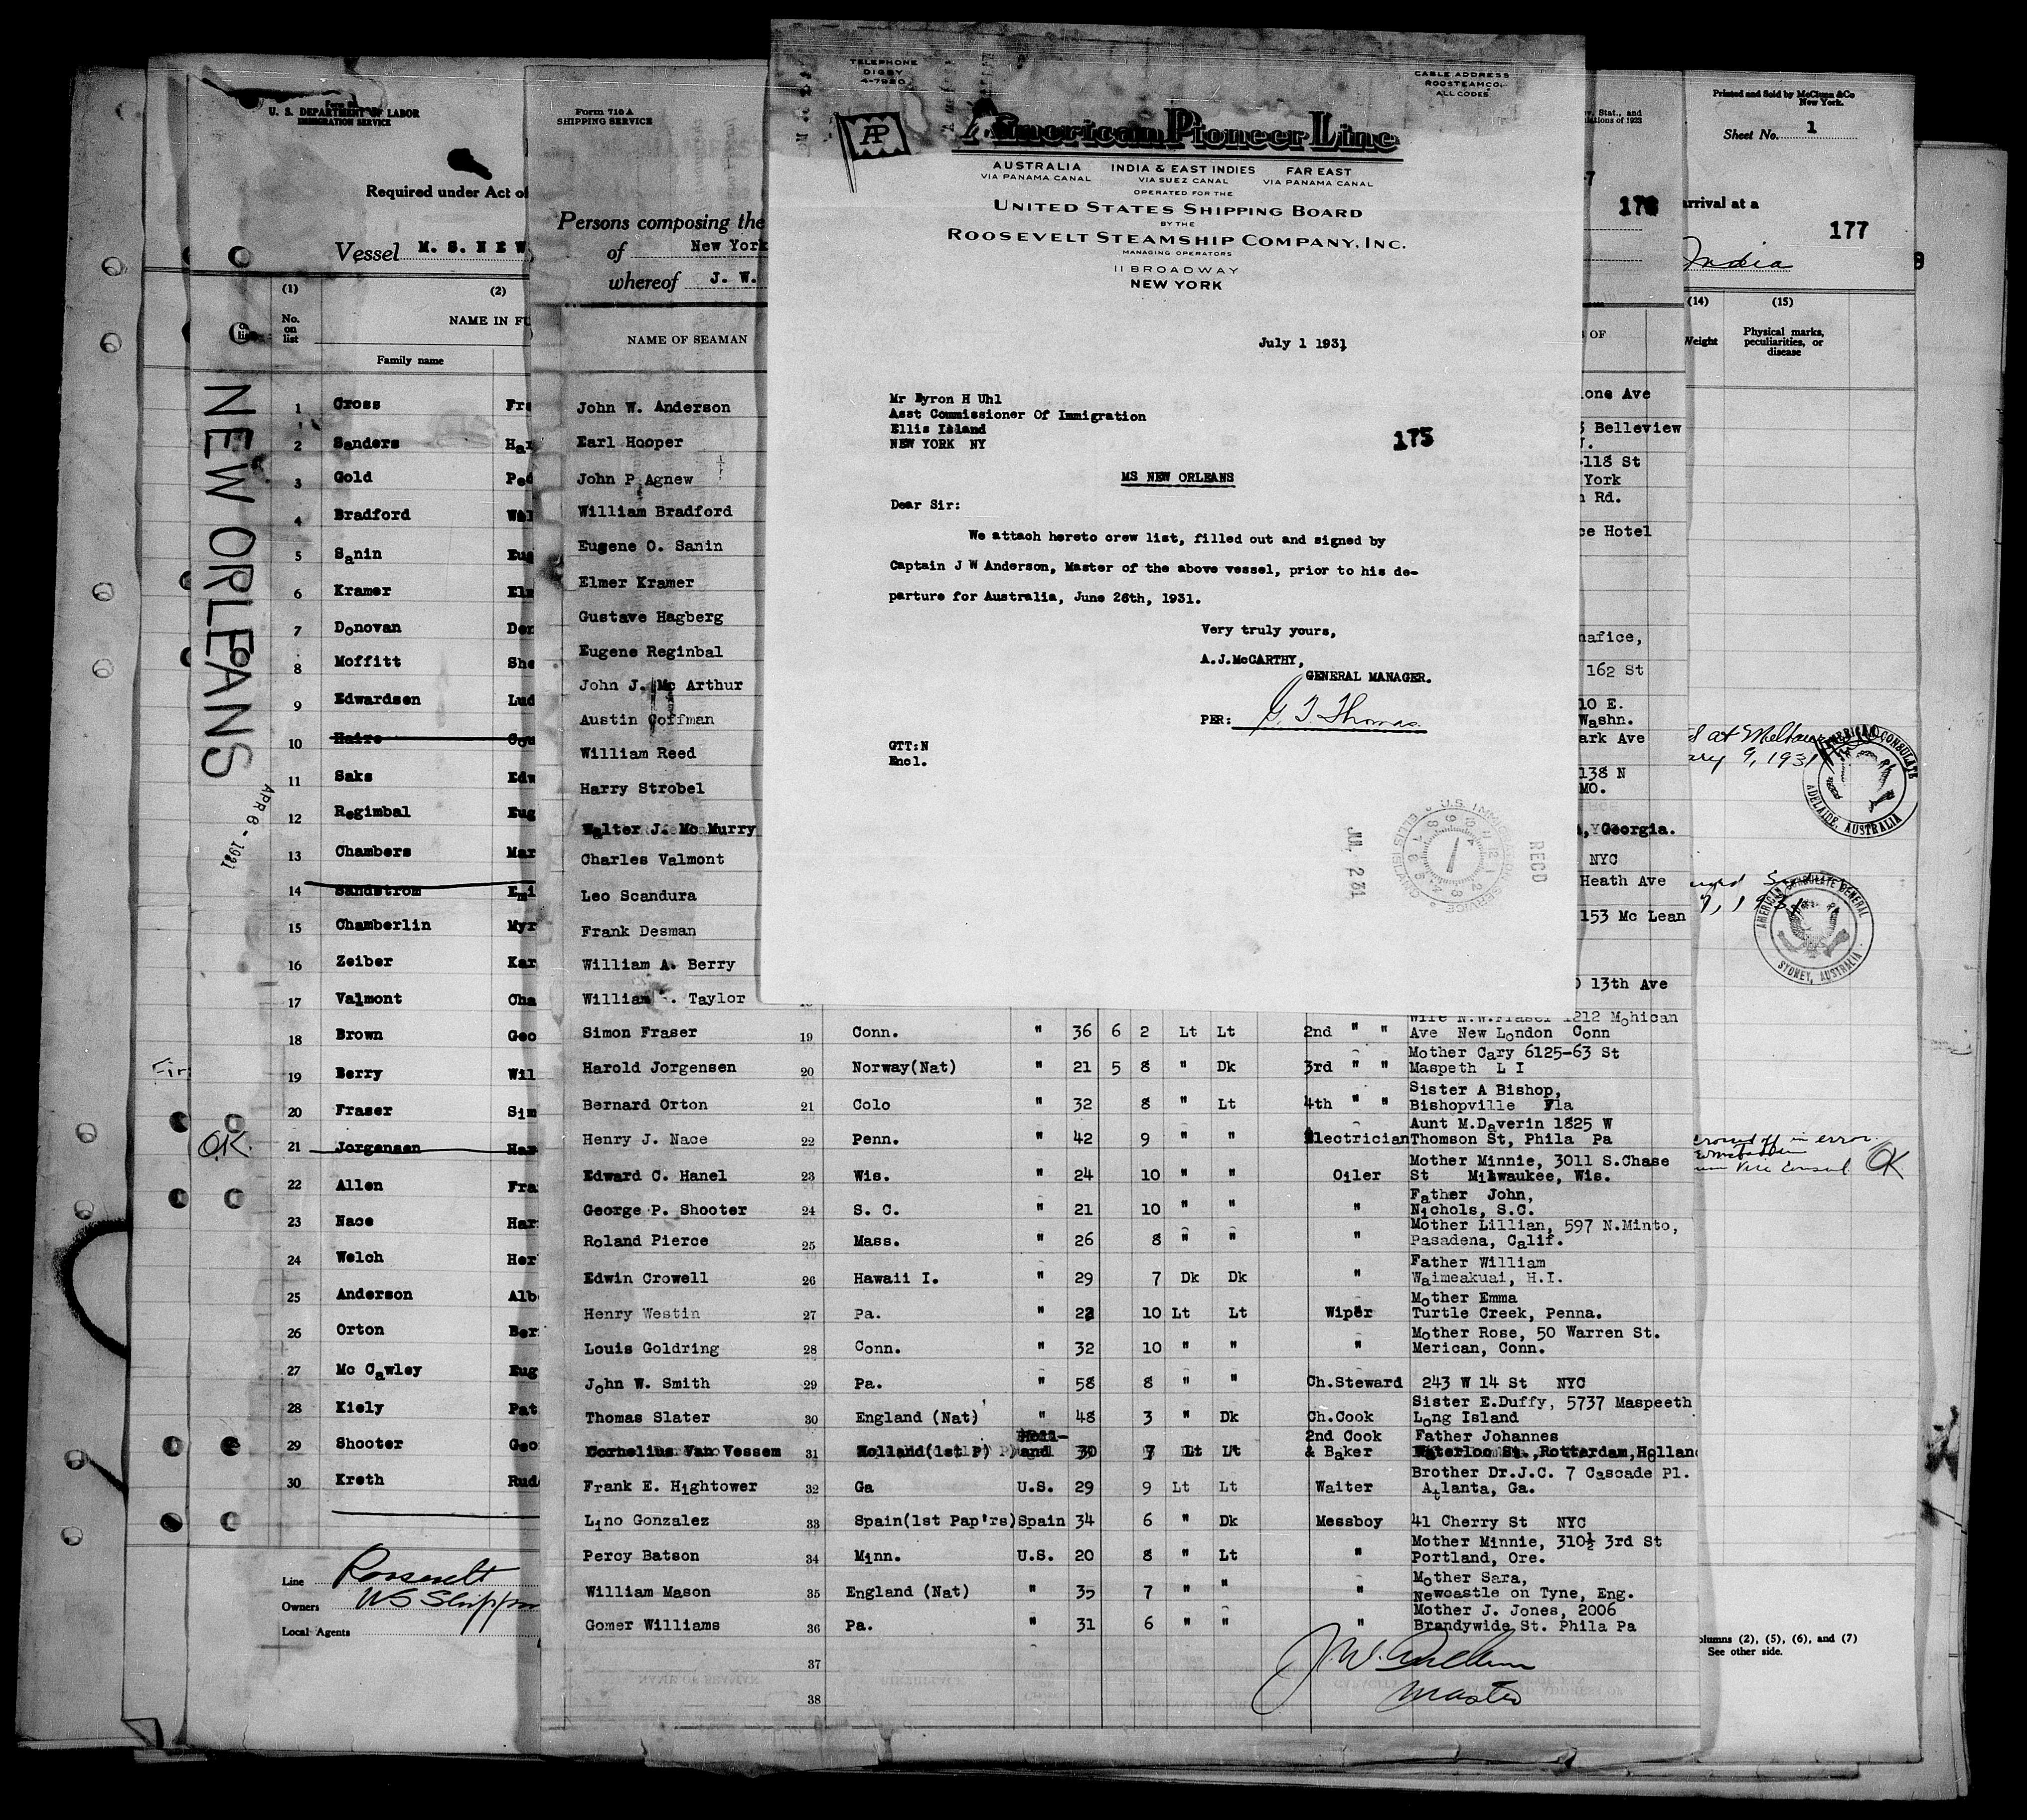 TELEPHONE
DIGBY
4-7920
CABLE ADDRESS
ROOSTEAMCO.
ALL CODES
AP
American Pioneer Line
AUSTRALIA INDIA & EAST INDIES FAR EAST
VIA PANAMA CANAL VIA SUEZ CANAL VIA PANAMA CANAL
OPERATED FOR THE
UNITED STATES SHIPPING BOARD
BY THE
ROOSEVELT STEAMSHIP COMPANY, INC.
MANAGING OPERATORS
11 BROADWAY
NEW YORK
July 1 1931
Mr Byron H Uhl
Asst Commissioner Of Immigration
Ellis Island
NEW YORK NY
175
MS NEW ORLEANS
Dear Sir:
We attach hereto crew list, filled out and signed by
Captain J W Anderson, Master of the above vessel, prior to his de-
parture for Australia, June 26th, 1931.
Very truly yours,
A.J.McCARTHY,
GENERAL MANAGER.
PER: G. T. Thomas
GTT:N
Encl.
U.S. IMMIGRATION SERVICE ELLIS ISLAND
RECD
JUL 2 31
U. S. DEPARTMENT OF LABOR
IMMIGRATION SERVICE
Required under Act of
Vessel M. S. NEW
(1) (2)
No. on list
NAME IN FU
Family name
NEW ORLEANS
APR 6 - 1931
1 Cross Fra
2 Sanders Har
3 Gold Ped
4 Bradford Wil
5 Sanin Eug
6 Kramer Elm
7 Donovan Den
8 Moffitt She
9 Edwardsen Lud
10 Haire Cou
11 Saks Edw
12 Regimbal Eug
13 Chambers Mar
14 Sandstrom Emi
15 Chamberlin Myr
16 Zeiber Kar
17 Valmont Cha
18 Brown Geo
19 Berry Wil
20 Fraser Sim
OK 21 Jorgensen Har
22 Allen Fra
23 Nace Har
24 Welch Her
25 Anderson Alb
26 Orton Ber
27 Mc Cawley Eug
28 Kiely Pat
29 Shooter Geo
30 Kreth Rud
Line Roosevelt
Owners US Shippin
Local Agents
Form 710 A
SHIPPING SERVICE
Persons composing the
of New York
whereof J. W.
NAME OF SEAMAN
John W. Anderson
Earl Hooper
John P Agnew
William Bradford
Eugene O. Sanin
Elmer Kramer
Gustave Hagberg
Eugene Reginbal
John J. Mc Arthur
Austin Coffman
William Reed
Harry Strobel
Walter J. Mc Murry
Charles Valmont
Leo Scandura
Frank Desman
William A. Berry
William . Taylor
Simon Fraser 19 Conn. " 36 6 2 Lt Lt 2nd " " Wife N.W.Fraser 1212 Mohican
Ave New London Conn
Harold Jorgensen 20 Norway(Nat) " 21 5 8 " Dk 3rd " " Mother Cary 6125-63 St
Maspeth L I
Bernard Orton 21 Colo " 32 8 " Lt 4th " " Sister A Bishop,
Bishopville Fla
Henry J. Nace 22 Penn. " 42 9 " " Electrician Aunt M.Daverin 1825 W
Thomson St, Phila Pa
Edward C. Hanel 23 Wis. " 24 10 " " Oiler Mother Minnie, 3011 S.Chase
St Milwaukee, Wis.
George P. Shooter 24 S. C. " 21 10 " " " Father John,
Nichols, S.C.
Roland Pierce 25 Mass. " 26 8 " " " Mother Lillian, 597 N.Minto,
Pasadena, Calif.
Edwin Crowell 26 Hawaii I. " 29 7 Dk Dk " Father William
Waimeakuai, H.I.
Henry Westin 27 Pa. " 22 10 Lt Lt Wiper Mother Emma
Turtle Creek, Penna.
Louis Goldring 28 Conn. " 32 10 " " " Mother Rose, 50 Warren St.
Merican, Conn.
John W. Smith 29 Pa. " 58 8 " " Ch.Steward 243 W 14 St NYC
Thomas Slater 30 England (Nat) " 48 3 " Dk Ch.Cook Sister E.Duffy, 5737 Maspeeth
Long Island
Cornelius Van Vessem 31 Holland(1st P) Holl-and 30 7 Lt Lt 2nd Cook & Baker Father Johannes
Waterloo St.,Rotterdam,Holland
Frank E. Hightower 32 Ga U.S. 29 9 Lt Lt Waiter Brother Dr.J.C. 7 Cascade Pl.
Atlanta, Ga.
Lino Gonzalez 33 Spain(1st Pap'rs) Spain 34 6 " Dk Messboy 41 Cherry St NYC
Percy Batson 34 Minn. U.S. 20 8 " Lt " Mother Minnie, 310½ 3rd St
Portland, Ore.
William Mason 35 England (Nat) " 35 7 " " " Mother Sara,
Newcastle on Tyne, Eng.
Gomer Williams 36 Pa. " 31 6 " " " Mother J. Jones, 2006
Brandywide St. Phila Pa
37
38
J. W. Anderson
Master
176
OF
one Ave
Belleview
118 St
York
Rd.
ce Hotel
nafice,
162 St
10 E.
Washn.
ark Ave
138 N
MO.
, Georgia.
NYC
Heath Ave
153 Mc Lean
13th Ave
Printed and Sold by McClunn & Co
New York.
Sheet No. 1
arrival at a
177
India
(14) (15)
Weight
Physical marks, peculiarities, or disease
at Melbourne
ary 9, 1931
AMERICAN CONSULATE
ADELAIDE, AUSTRALIA
AMERICAN CONSULATE GENERAL
SYDNEY, AUSTRALIA
crossed off in error.
Vice Consul OK
olumns (2), (5), (6), and (7)
See other side.